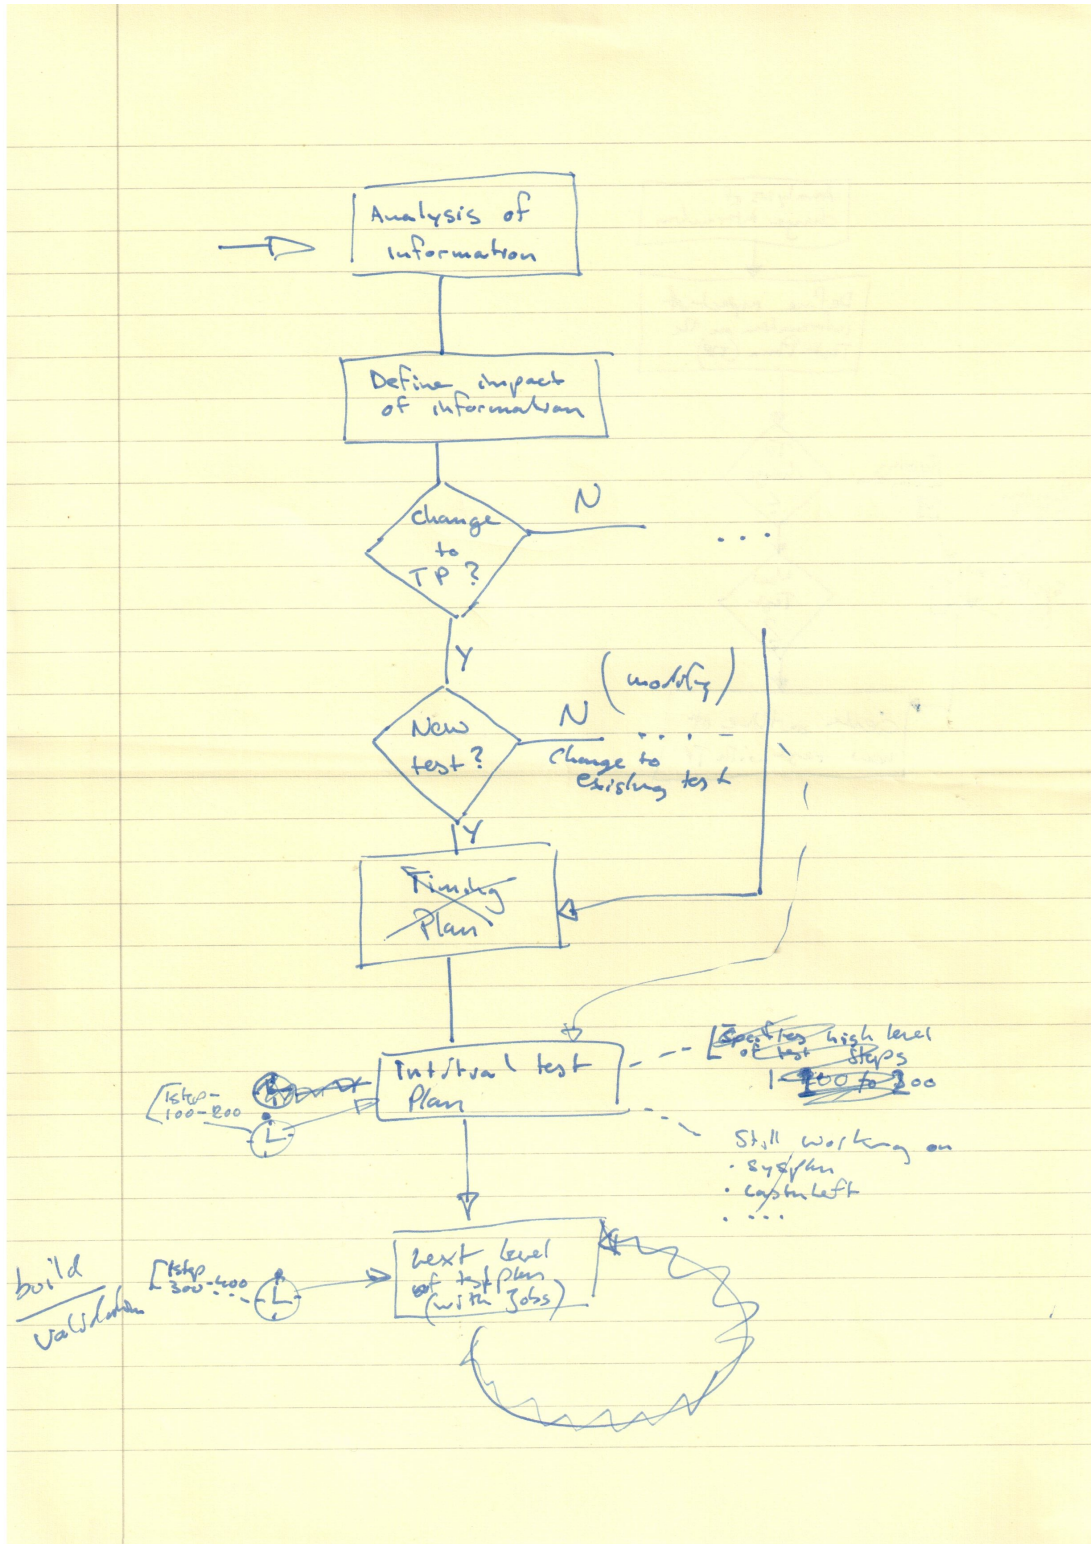 Analysis of
information
Define impact
of information
Change
to
TP?
N
...
Y
(modify)
New
test?
N
...
Change to
existing test
Y
Timing
Plan
Initial test
Plan
Specifies high level
of test steps
100 to 300
tstep
100-200
Still working on
. sysplan
.
. ...
build
validation
tstep
300-400
next level
of test plan
(with Jobs)